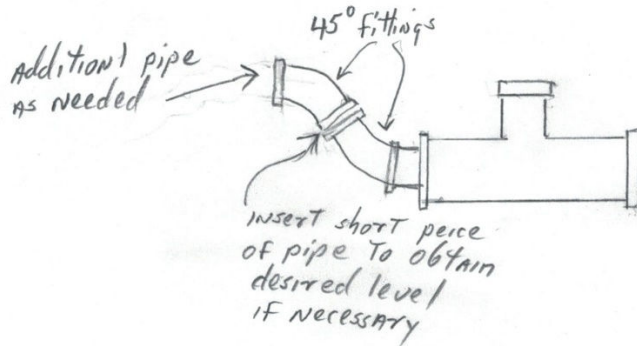 45° fittings
Additionl pipe
As Needed
insert short peice
of pipe To obtain
desired level
if Necessary